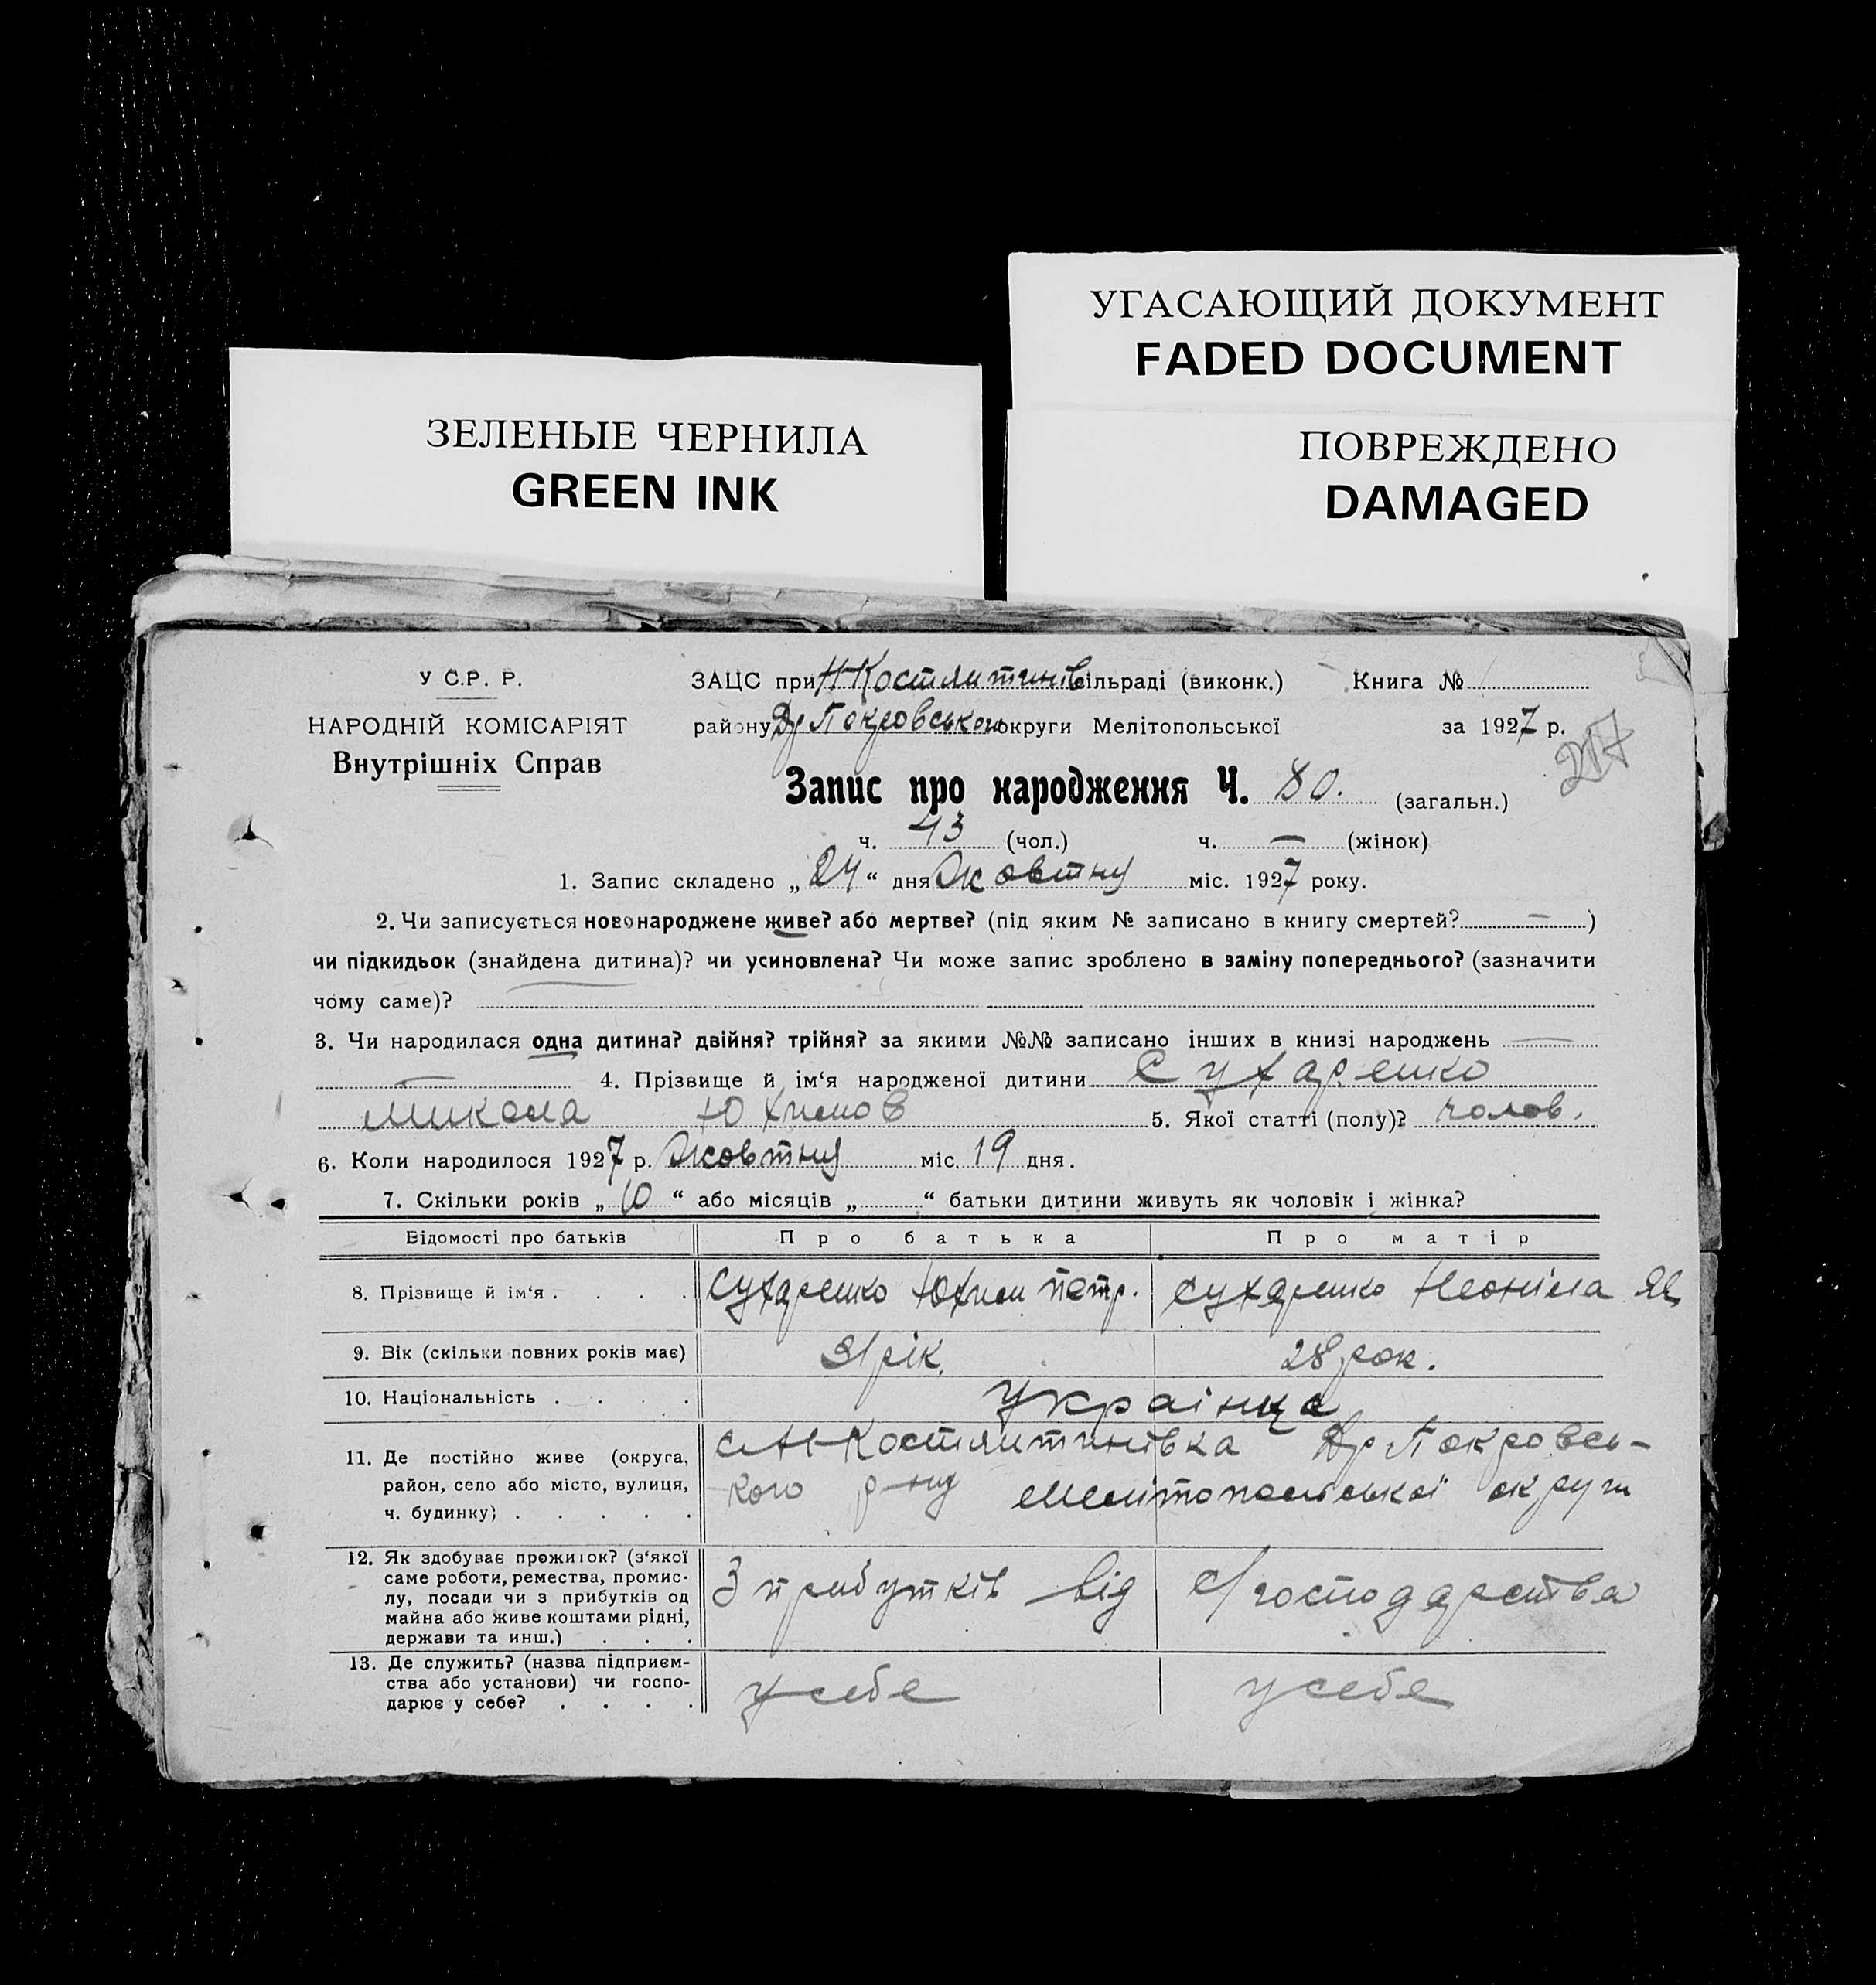 УГАСАЮЩИЙ ДОКУМЕНТ
FADED DOCUMENT
ЗЕЛЕНЫЕ ЧЕРНИЛА
GREEN INK
ПОВРЕЖДЕНО
DAMAGED
У С.Р. Р.
НАРОДНІЙ КОМІСАРІЯТ
Внутрішніх Справ
ЗАЦС при Н-Костянтинів сільраді (виконк.) Книга №
району Др Покровського округи Мелітопольської за 1927 р.
217
Запис про народження Ч. 80. (загальн.)
ч. 43 (чол.) ч. — (жінок)
1. Запис складено „ 24 “ дня Жовтну міс. 1927 року.
2. Чи записується новонароджене живе? або мертве? (під яким № записано в книгу смертей? — )
чи підкидьок (знайдена дитина)? чи усиновлена? Чи може запис зроблено в заміну попереднього? (зазначити
чому саме)?
3. Чи народилася одна дитина? двійня? трійня? за якими №№ записано інших в книзі народжень —
— 4. Прізвище й ім‘я народженої дитини Сухаренко
Микола Юхимов 5. Якої статті (полу)? чолов.
6. Коли народилося 1927 р. Жовтну міс. 19 дня.
7. Скільки років „ 10 “ або місяців „ “ батьки дитини живуть як чоловік і жінка?
Відомості про батьків Про батька Про матір
8. Прізвище й ім‘я . . . . Сухаренко Юхим Петр. Сухаренко Неоніла Як
9. Вік (скільки повних років має) 31 рік. 28 рок.
10. Національність . . . . Українце
11. Де постійно живе (округа, с Н-Костянтинівка Др Покровсь-
район, село або місто, вулиця, кого р-ну Мелітопольської округи
ч. будинку) . . . . .
12. Як здобуває прожиток? (з‘якої
саме роботи, ремества, промис-
лу, посади чи з прибутків од З прибутків від с/господарства
майна або живе коштами рідні,
держави та инш.) . . .
13. Де служить? (назва підприєм-
ства або установи) чи госпо- у себе у себе
дарює у себе? . . . .